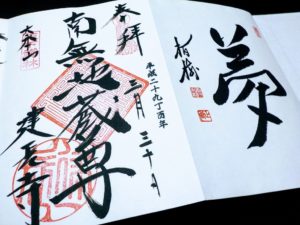 奉拝
平成二十九丁酉年
三月三十日
南無地蔵尊
大本山
建長寺
夢